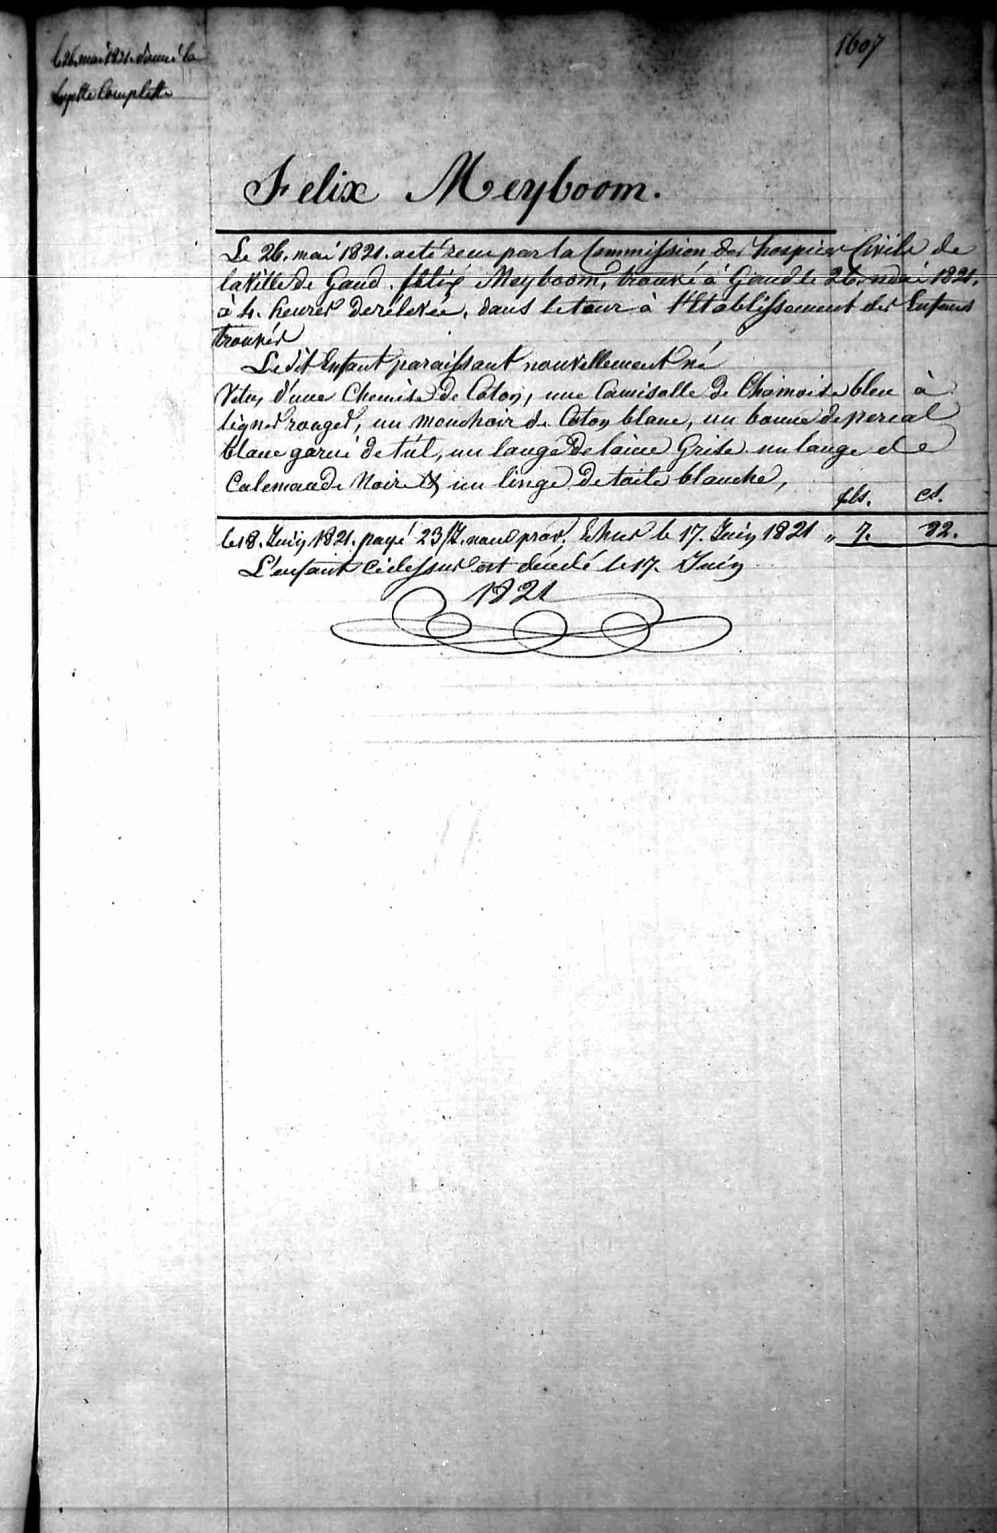 le 26. mai 1821. donné la
layette Complette
1607
Felix Meyboom.
Le 26. mai 1821. a eté recu par la Commission des hospices Civils de
la Ville de Gand. félix Meyboom, trouvé à Gand le 26. mai 1821.
à 4. heures de rélevée, dans le tour à l'Etablissement des Enfans
trouvés
Le dit Enfant paraissant nouvellement né
Vetu, d'une Chemise de Coton, une Camisolle de Chamoise bleu à
lignes rouges, un mouchoir de Coton blanc, un bonnet de percal
blanc garni de tul, un lange de laine Grise un lange de
Calemande Noire & un linge de toile blanche,
fls. cs.
le 18. Juin 1821. payé 23 js. nour. prov. Echus le 17. Juin 1821 " 7. 92.
L'enfant cidessus est décédé le 17. Juin
1821